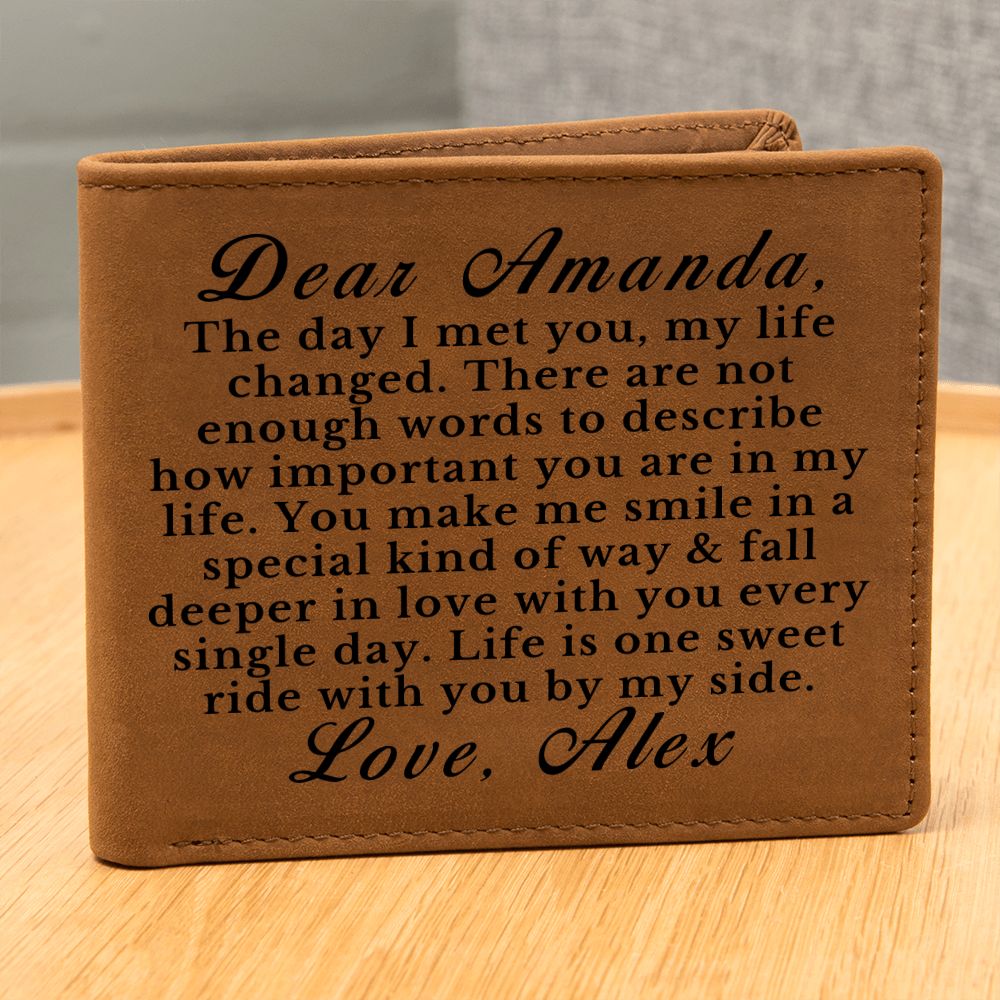 Dear Amanda,
The day I met you, my life
changed. There are not
enough words to describe
how important you are in my
life. You make me smile in a
special kind of way & fall
deeper in love with you every
single day. Life is one sweet
ride with you by my side.
Love, Alex